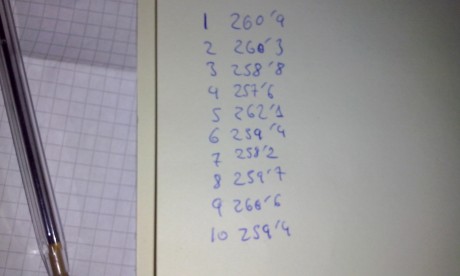 1 260'9
2 260'3
3 258'8
4 257'6
5 262'1
6 259'4
7 258'2
8 259'7
9 260'6
10 259'4